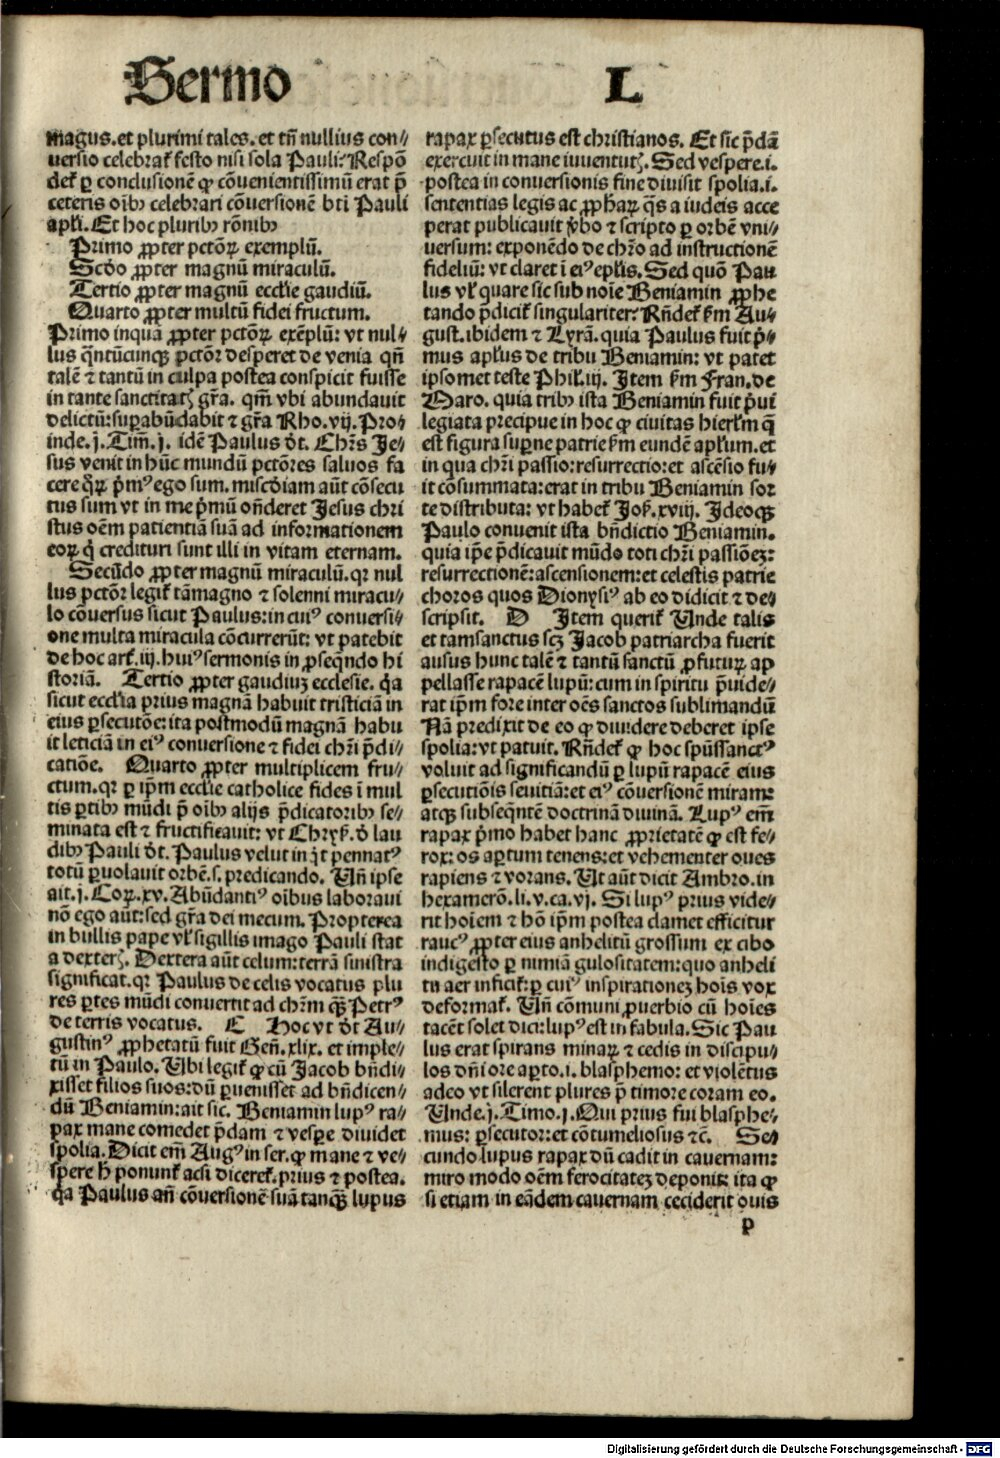 Sermo L
magus. et plurimi tales. et tñ nullius con⸗
uersio celebrať festo nisi sola Pauli: Respõ
deť ꝑ conclusionẽ ꝙ cõuenientissimũ erat p̃
ceteris oĩbꝫ celebrari cõuersionẽ bti Pauli
apłi. Et hoc pluribꝫ rõnibꝫ
Primo ꝓpter pctõꝝ exemplũ.
Scďo ꝓpter magnũ miraculũ.
Tertio ꝓpter magnũ eccłie gaudiũ.
Quarto ꝓpter multũ fidei fructum.
Primo inquã ꝓpter pctõꝝ exẽplũ: vt nul⸗
lus q̃ntũcunqꝫ pctõr desperet de venia qñ
talẽ ⁊ tantũ in culpa postea conspicit fuisse
in tante sanctitatꝭ gr̃a. qm̃ vbi abundauit
delictũ: suꝑabũdabit ⁊ gr̃a Rho. vij. Pro⸗
inde. j. Tim̃. j. idẽ Paulus ďt. Chr̃s Je⸗
sus venit in hũc mundũ pctõres saluos fa
cere qꝝ p̃mꝰ ego sum. miscďiam aũt cõsecu
tus sum vt in me p̃mũ oñderet Jesus chri
stus oẽm patientiã suã ad informationem
eoꝝ q̇ credituri sunt illi in vitam eternam.
Secũdo ꝓpter magnũ miraculũ. qꝛ nul
lus pctõr legiť tã magno ⁊ solenni miracu⸗
lo cõuersus sicut Paulus: in cuiꝰ conuersi⸗
one multa miracula cõcurrerũt: vt patebit
de hoc arť. iij. huiꝰ sermonis in ꝓseq̃ndo hi
storiã. Tertio ꝓpter gaudiuꝫ ecclesie. q̇a
sicut eccłia prius magnã habuit tristiciã in
eius ꝑsecutõe: ita postmodũ magnã habu
it leticiã in eiꝰ conuersione ⁊ fidei chr̃i p̃di⸗
catiõe. Quarto ꝓpter multiplicem fru⸗
ctum. qꝛ ꝑ ip̃m eccłie catholice fides ĩ mul
tis ꝑtibꝫ mũdi p̃ oĩbꝫ alijs p̃dicatoribꝫ se⸗
minata est ⁊ fructificauit: vt Chryš. ď lau
dibꝫ Pauli ďt. Paulus velut in q̇t pennatꝰ
totũ ꝑuolauit orbẽ. s. predicando. Uñ ipse
ait. j. Coꝝ. xv. Abũdantiꝰ oĩbus laboraui
nõ ego aũt: sed gr̃a dei mecum. Propterea
in bullis pape vľ sigillis imago Pauli stat
a dexterꝭ. Dextera aũt celum: terrã sinistra
significat. qꝛ Paulus de celis vocatus plu
res ꝑtes mũdi conuertit ad chr̃m qꝫ̃ Petrꝰ
de terris vocatus. C Hoc vt ďt Au⸗
gustinꝰ ꝓphetatũ fuit Geñ. xlix. et imple⸗
tũ in Paulo. Ubi legiť ꝙ cũ Jacob bñdi⸗
xisset filios suos: dũ ꝑuenisset ad bñdicen⸗
dũ Beniamin: ait sic. Beniamin lupꝰ ra⸗
pax mane comedet p̃dam ⁊ vesꝑe diuidet
spolia. Dicit em̃ Augꝰ in ser. ꝙ mane ⁊ ve⸗
spere h̃ ponunť acsi dicereť. prius ⁊ postea.
q̇a Paulus añ cõuersionẽ suã tanqꝫ lupus
rapax ꝑsecutus est christianos. Et sic p̃dã
exercuit in mane iuuentutꝭ. Sed vespere. i.
postea in conuersionis fine diuisit spolia. i.
sententias legis ac ꝓphaꝝ q̃s a iudeis acce
perat publicauit ṽbo ⁊ scripto ꝑ orbẽ vni⸗
uersum: exponẽdo de chr̃o ad instructionẽ
fideliũ: vt claret ĩ eiꝰ epłis. Sed quõ Pau
lus vľ quare sic sub noĩe Beniamin ꝓphe
tando p̃diciť singulariter: Rñdeť šm Au⸗
gust. ibidem ⁊ Lyrã. quia Paulus fuit p̃⸗
mus apłus de tribu Beniamin: vt patet
ipsomet teste Phiľ. iij. Item šm Fran. de
Maro. quia tribꝫ ista Beniamin fuit p̃ui
legiata precipue in hoc ꝙ ciuitas hierłm q̃
est figura suꝑne patrie šm eundẽ apłum. et
in qua chr̃i passio: resurrectio: et ascẽsio fu⸗
it cõsummata: erat in tribu Beniamin sor
te distributa: vt habeť Jos̃. xviij. Ideoqꝫ
Paulo conuenit ista bñdictio Beniamin.
quia ip̃e p̃dicauit mũdo toti chr̃i passiõeꝫ:
resurrectionẽ: ascensionem: et celestis patrie
choros quos Dionysiꝰ ab eo didicit ⁊ de⸗
scripsit. D Item queriť Unde talis
et tam sanctus scꝫ Jacob patriarcha fuerit
ausus hunc talẽ ⁊ tantũ sanctũ ꝓfuturꝝ ap
pellasse rapacẽ lupũ: cum in spiritu p̃uide⸗
rat ip̃m fore inter oẽs sanctos sublimandũ
Nã predixit de eo ꝙ diuidere deberet ipse
spolia: vt patuit. Rñdeť ꝙ hoc spũssanctꝰ
voluit ad significandũ ꝑ lupũ rapacẽ eius
ꝑsecutiõis seuitiã: et eiꝰ cõuersionẽ miram:
atqꝫ subseq̃ntẽ doctrinã diuinã. Lupꝰ em̃
rapax p̃mo habet hanc ꝓprietatẽ ꝙ est fe⸗
rox: os aꝑtum tenens: et vehementer oues
rapiens ⁊ vorans. Ut aũt dicit Ambro. in
hexamerõ. li. v. ca. vj. Si lupꝰ prius vide⸗
rit hoĩem ⁊ hõ ip̃m postea clamet efficitur
raucꝰ ꝓpter eius anhelitũ grossum ex cibo
indigesto ꝑ nimiã gulositatem: quo anheli
tu aer inficiť: ꝑ cuiꝰ inspirationeꝫ hoĩs vox
deformať. Uñ cõmuni ꝓuerbio cũ hoĩes
tacẽt solet dici: lupꝰ est in fabula. Sic Pau
lus erat spirans minaꝝ ⁊ cedis in discipu⸗
los dñi ore aꝑto. i. blasphemo: et violẽtus
adeo vt silerent plures p̃ timore coram eo.
Unde. j. Timo. j. Qui prius fui blasphe⸗
mus: ꝑsecutor: et cõtumeliosus ⁊c̃. Se⸗
cundo lupus rapax dũ cadit in cauernam:
miro modo oẽm ferocitateꝫ deponit: ita ꝙ
si etiam in eãdem cauernam ceciderit ouis
p
Digitalisierung gefördert durch die Deutsche Forschungsgemeinschaft - DFG